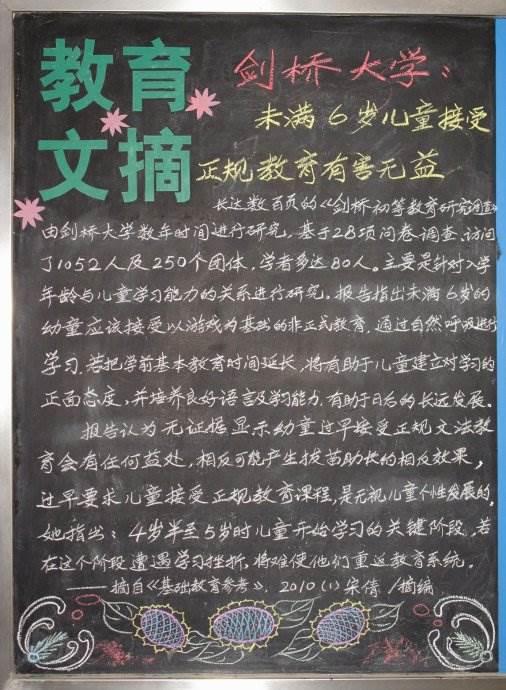 教育
文摘
剑桥大学：
未满6岁儿童接受
正规教育有害无益
长达数百页的《剑桥初等教育研究调查》
由剑桥大学数年时间进行研究，基于28项问卷调查、访问
了1052人及250个团体，学者多达80人。主要是针对入学
年龄与儿童学习能力的关系进行研究。报告指出未满6岁的
幼童应该接受以游戏为基础的非正式教育，通过自然呼吸进行
学习，若把学前基本教育时间延长，将有助于儿童建立对学习的
正面态度，并培养良好语言及学习能力，有助于日后的长远发展。
报告认为无证据显示幼童过早接受正规文法教
育会有任何益处，相反可能产生拔苗助长的相反效果，
过早要求儿童接受正规教育课程，是无视儿童个性发展的。
她指出：4岁半至5岁时儿童开始学习的关键阶段，若
在这个阶段遭遇学习挫折，将难使他们重返教育系统。
——摘自《基础教育参考》，2010（1）宋倩/摘编